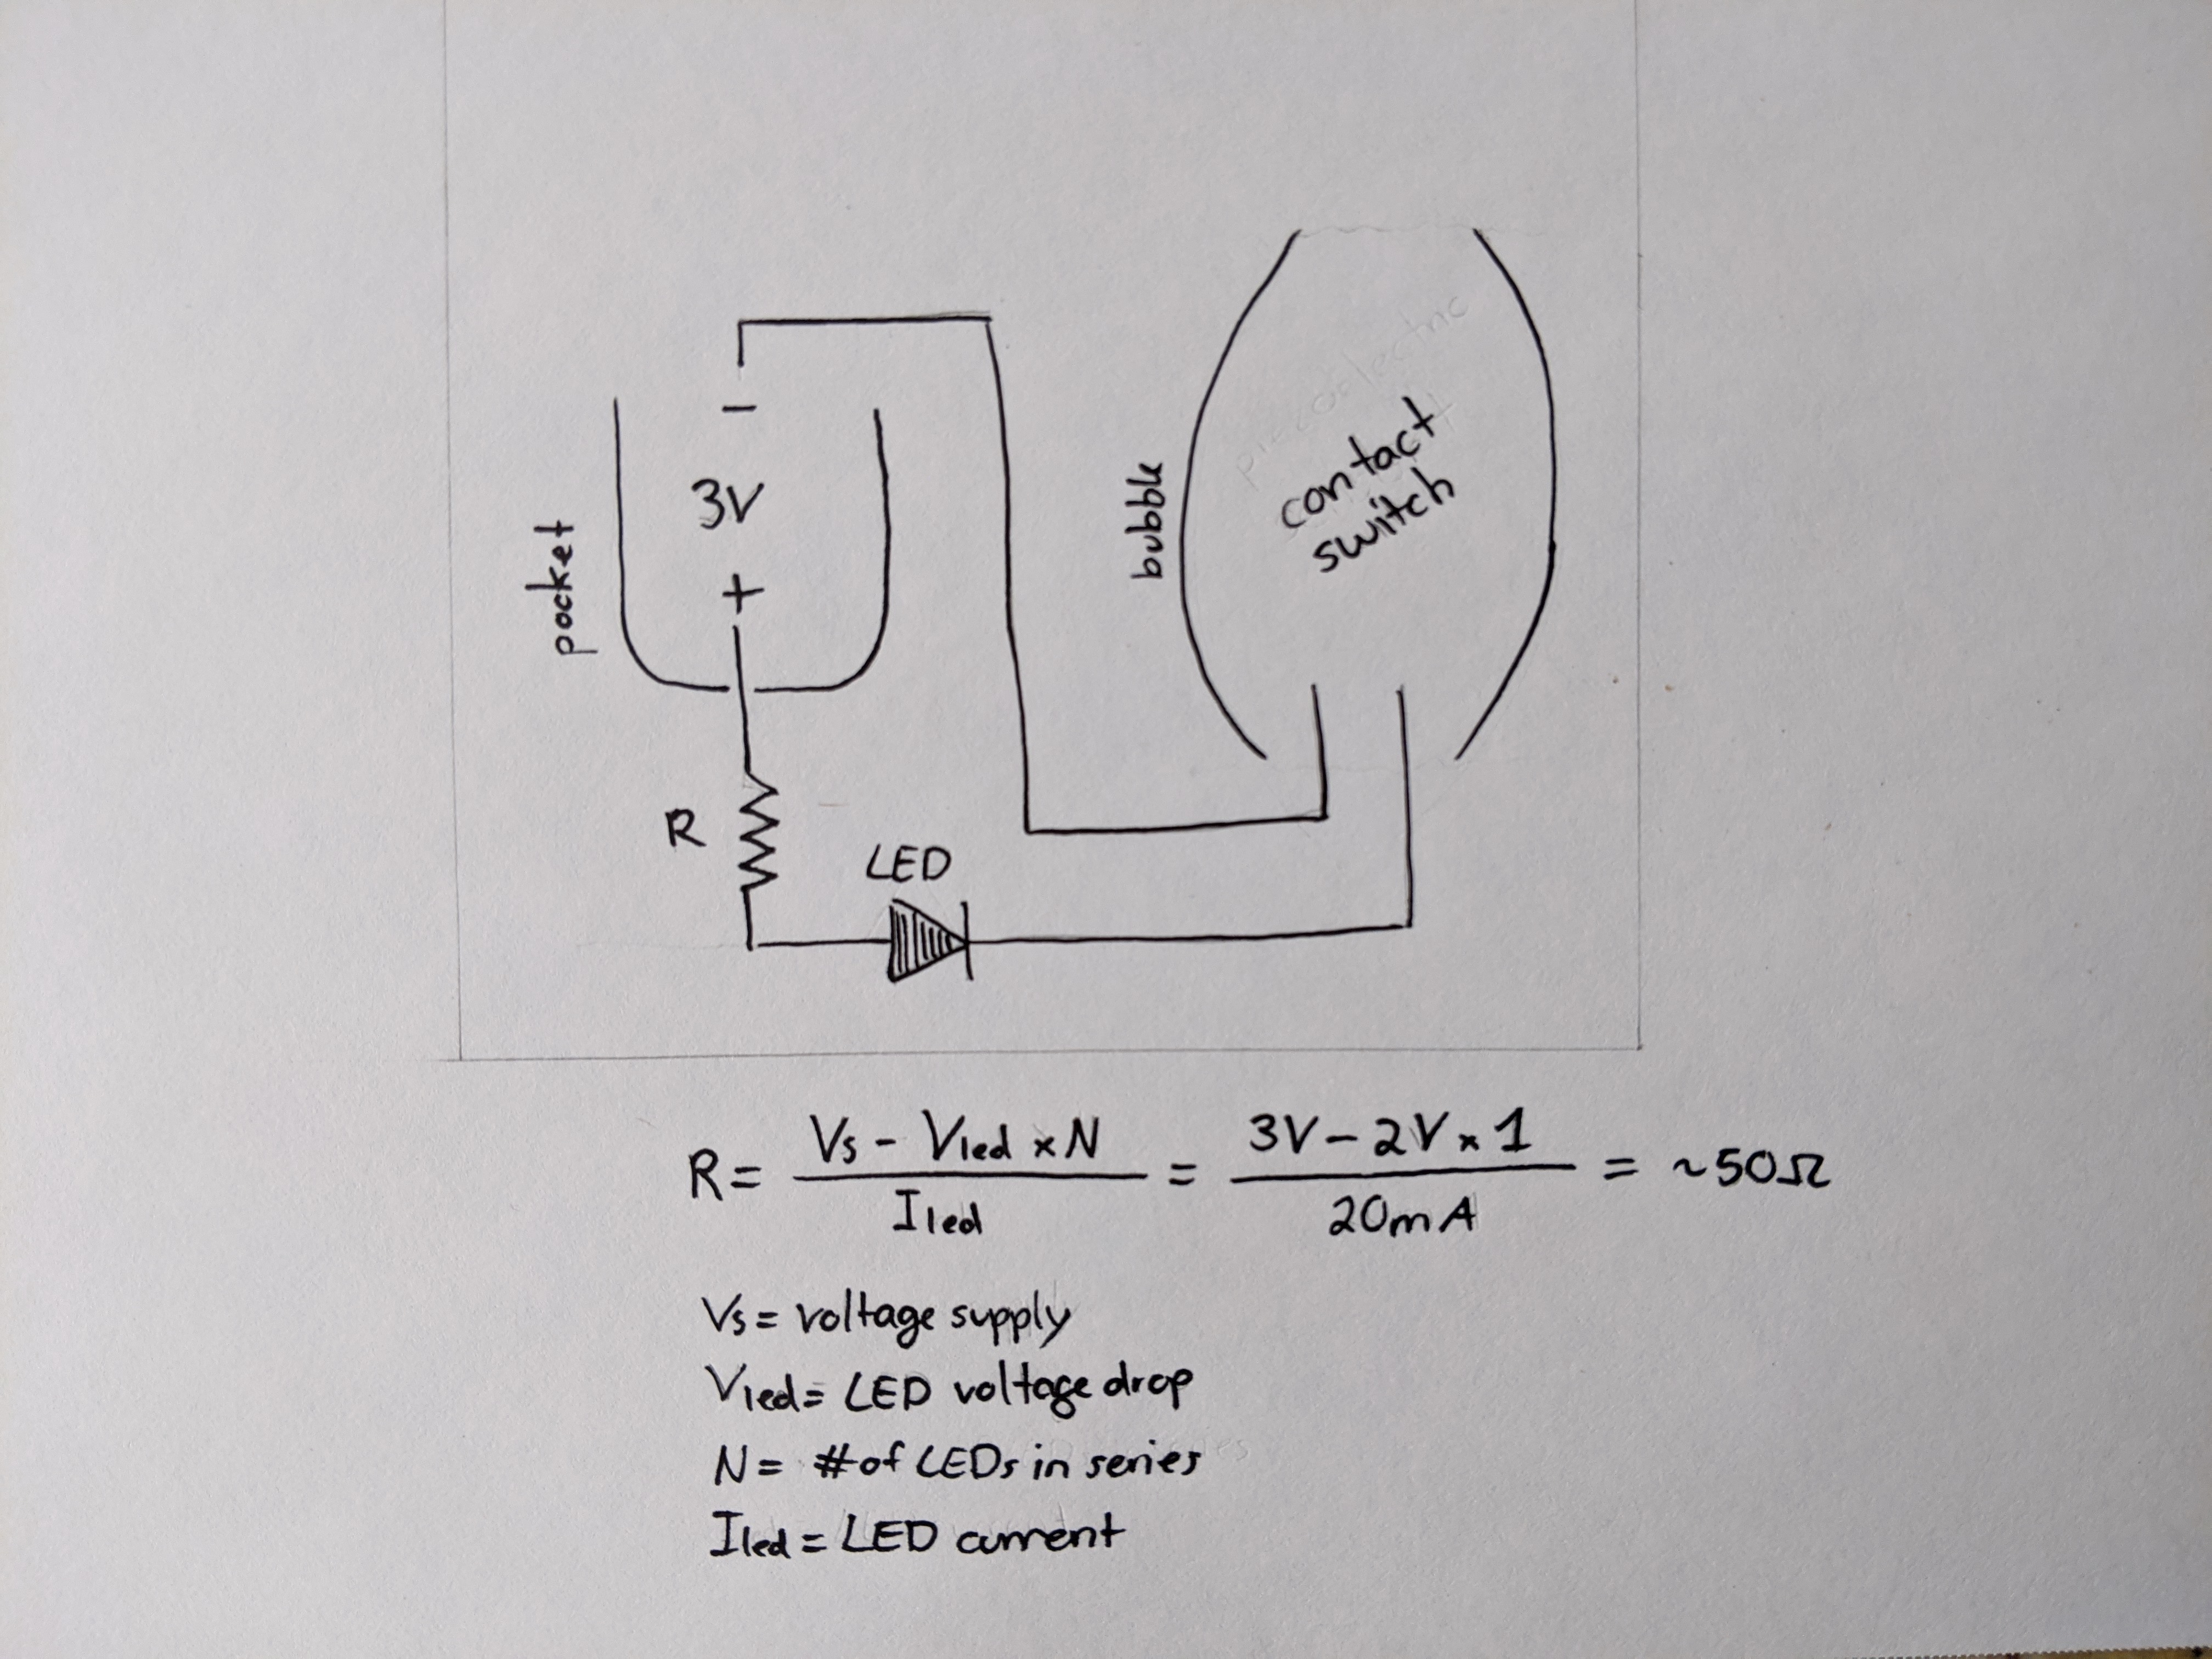 -
3V
+
pocket
bubble
piezoelectric
contact
switch
R
LED
R = Vs - Vled × N / Iled = 3V - 2V × 1 / 20mA = ~50Ω
Vs = voltage supply
Vled = LED voltage drop
N = # of LEDs in series
Iled = LED current